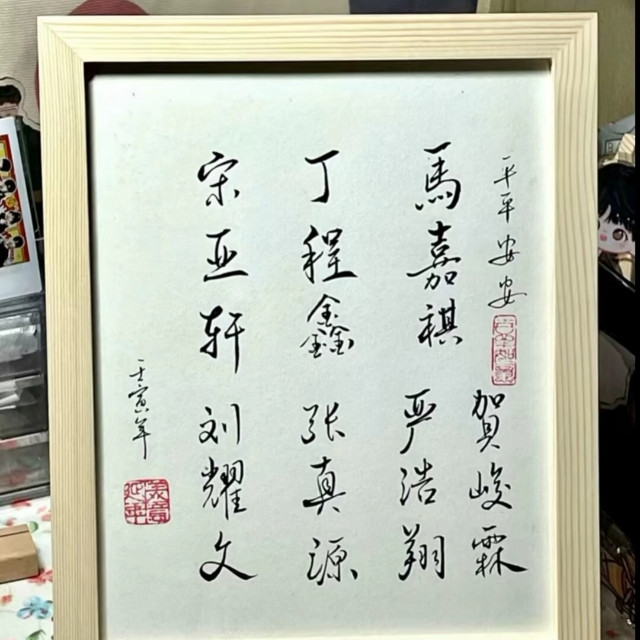 平平安安
賀峻霖
馬嘉祺 严浩翔
丁程鑫 张真源
宋亚轩 刘耀文
壬寅年